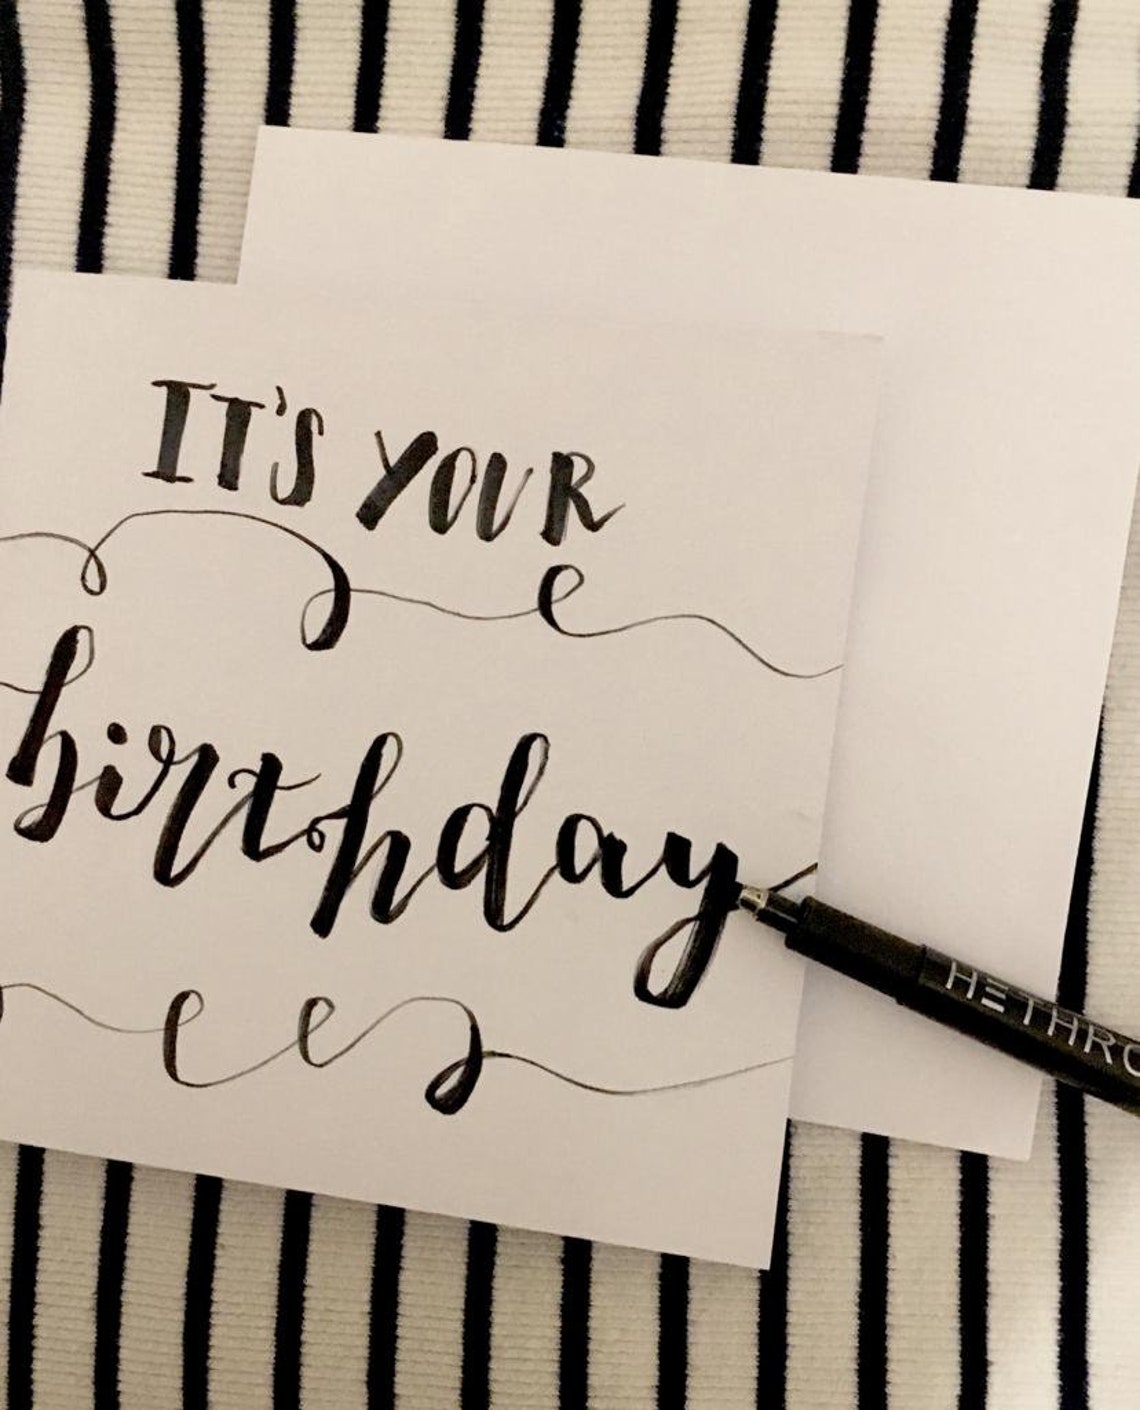 IT'S YOUR
birthday
HETHRO